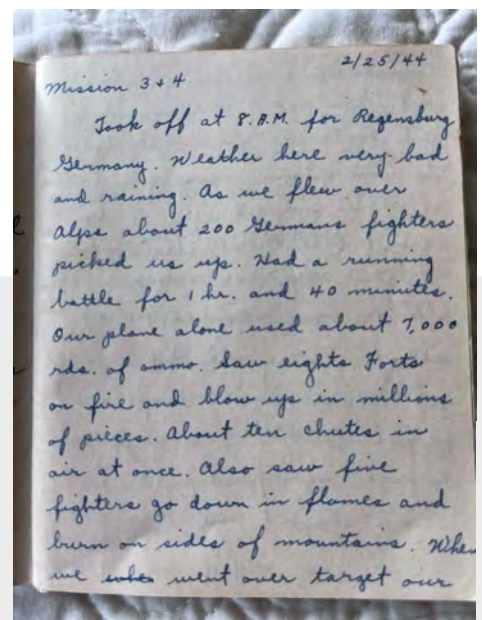 2/25/44
Mission 3 + 4
Took off at 8.A.M. for Regensburg
Germany. Weather here very bad
and raining. As we flew over
Alps about 200 Germans fighters
picked us up. Had a running
battle for 1 hr. and 40 minutes.
Our plane alone used about 7,000
rds. of ammo. Saw eights Forts
on fire and blow up in millions
of pieces. About ten chutes in
air at once. Also saw five
fighters go down in flames and
burn on sides of mountains. When
we went over target our